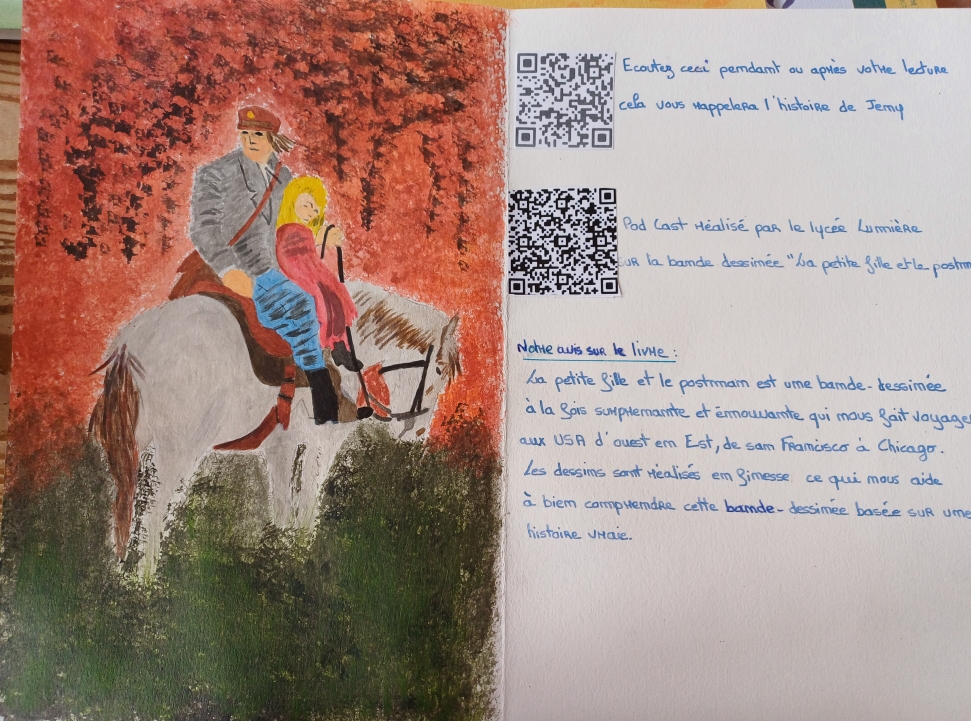 Ecoutez ceci pendant ou après votre lecture
cela vous rappelera l'histoire de Jeny
Pod Cast réalisé par le lycée Lumière
sur la bande dessinée "La petite fille et le postm
Notre avis sur le livre :
La petite fille et le postman est une bande-dessinée
à la fois surprenante et émouvante qui nous fait voyager
aux USA d'ouest en Est, de san Francisco à Chicago.
Les dessins sont réalisés en finesse ce qui nous aide
à bien comprendre cette bande-dessinée basée sur une
histoire vraie.